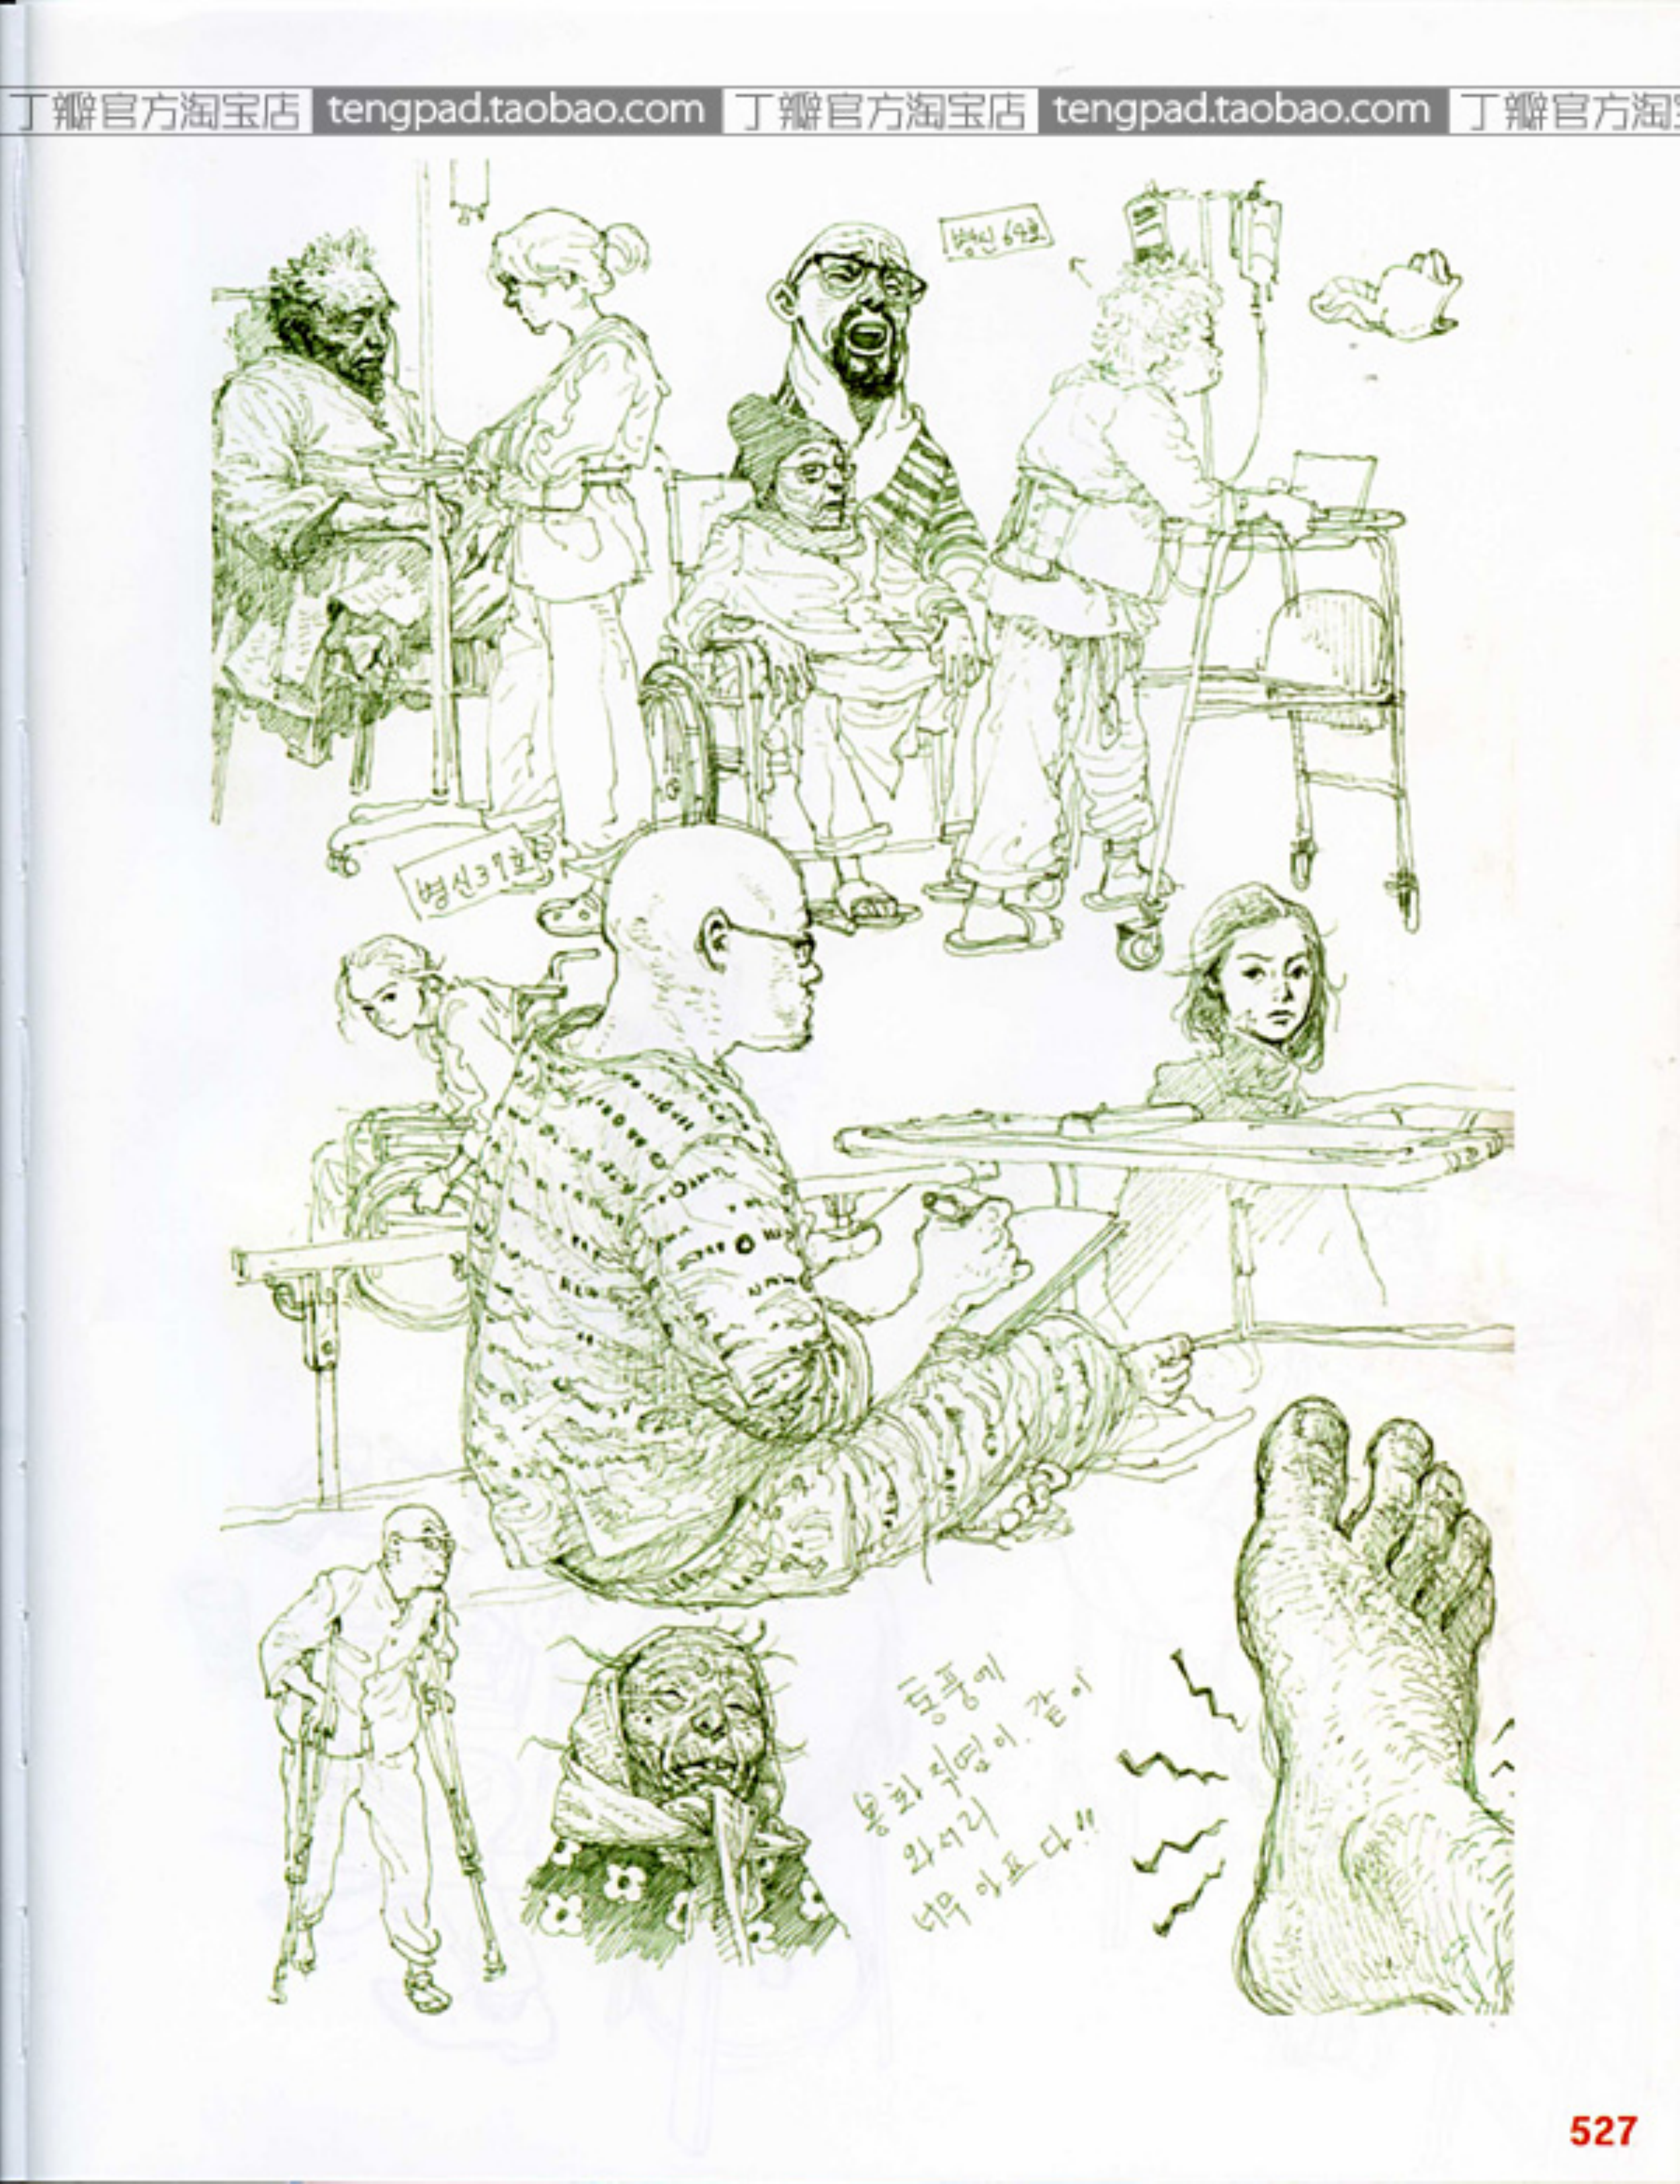 丁瓣官方淘宝店 tengpad.taobao.com 丁瓣官方淘宝店 tengpad.taobao.com 丁瓣官方淘宝
병신 64호
병신37호
통풍에
봉화직염이. 같이
와서리
너무 아프다!!
527